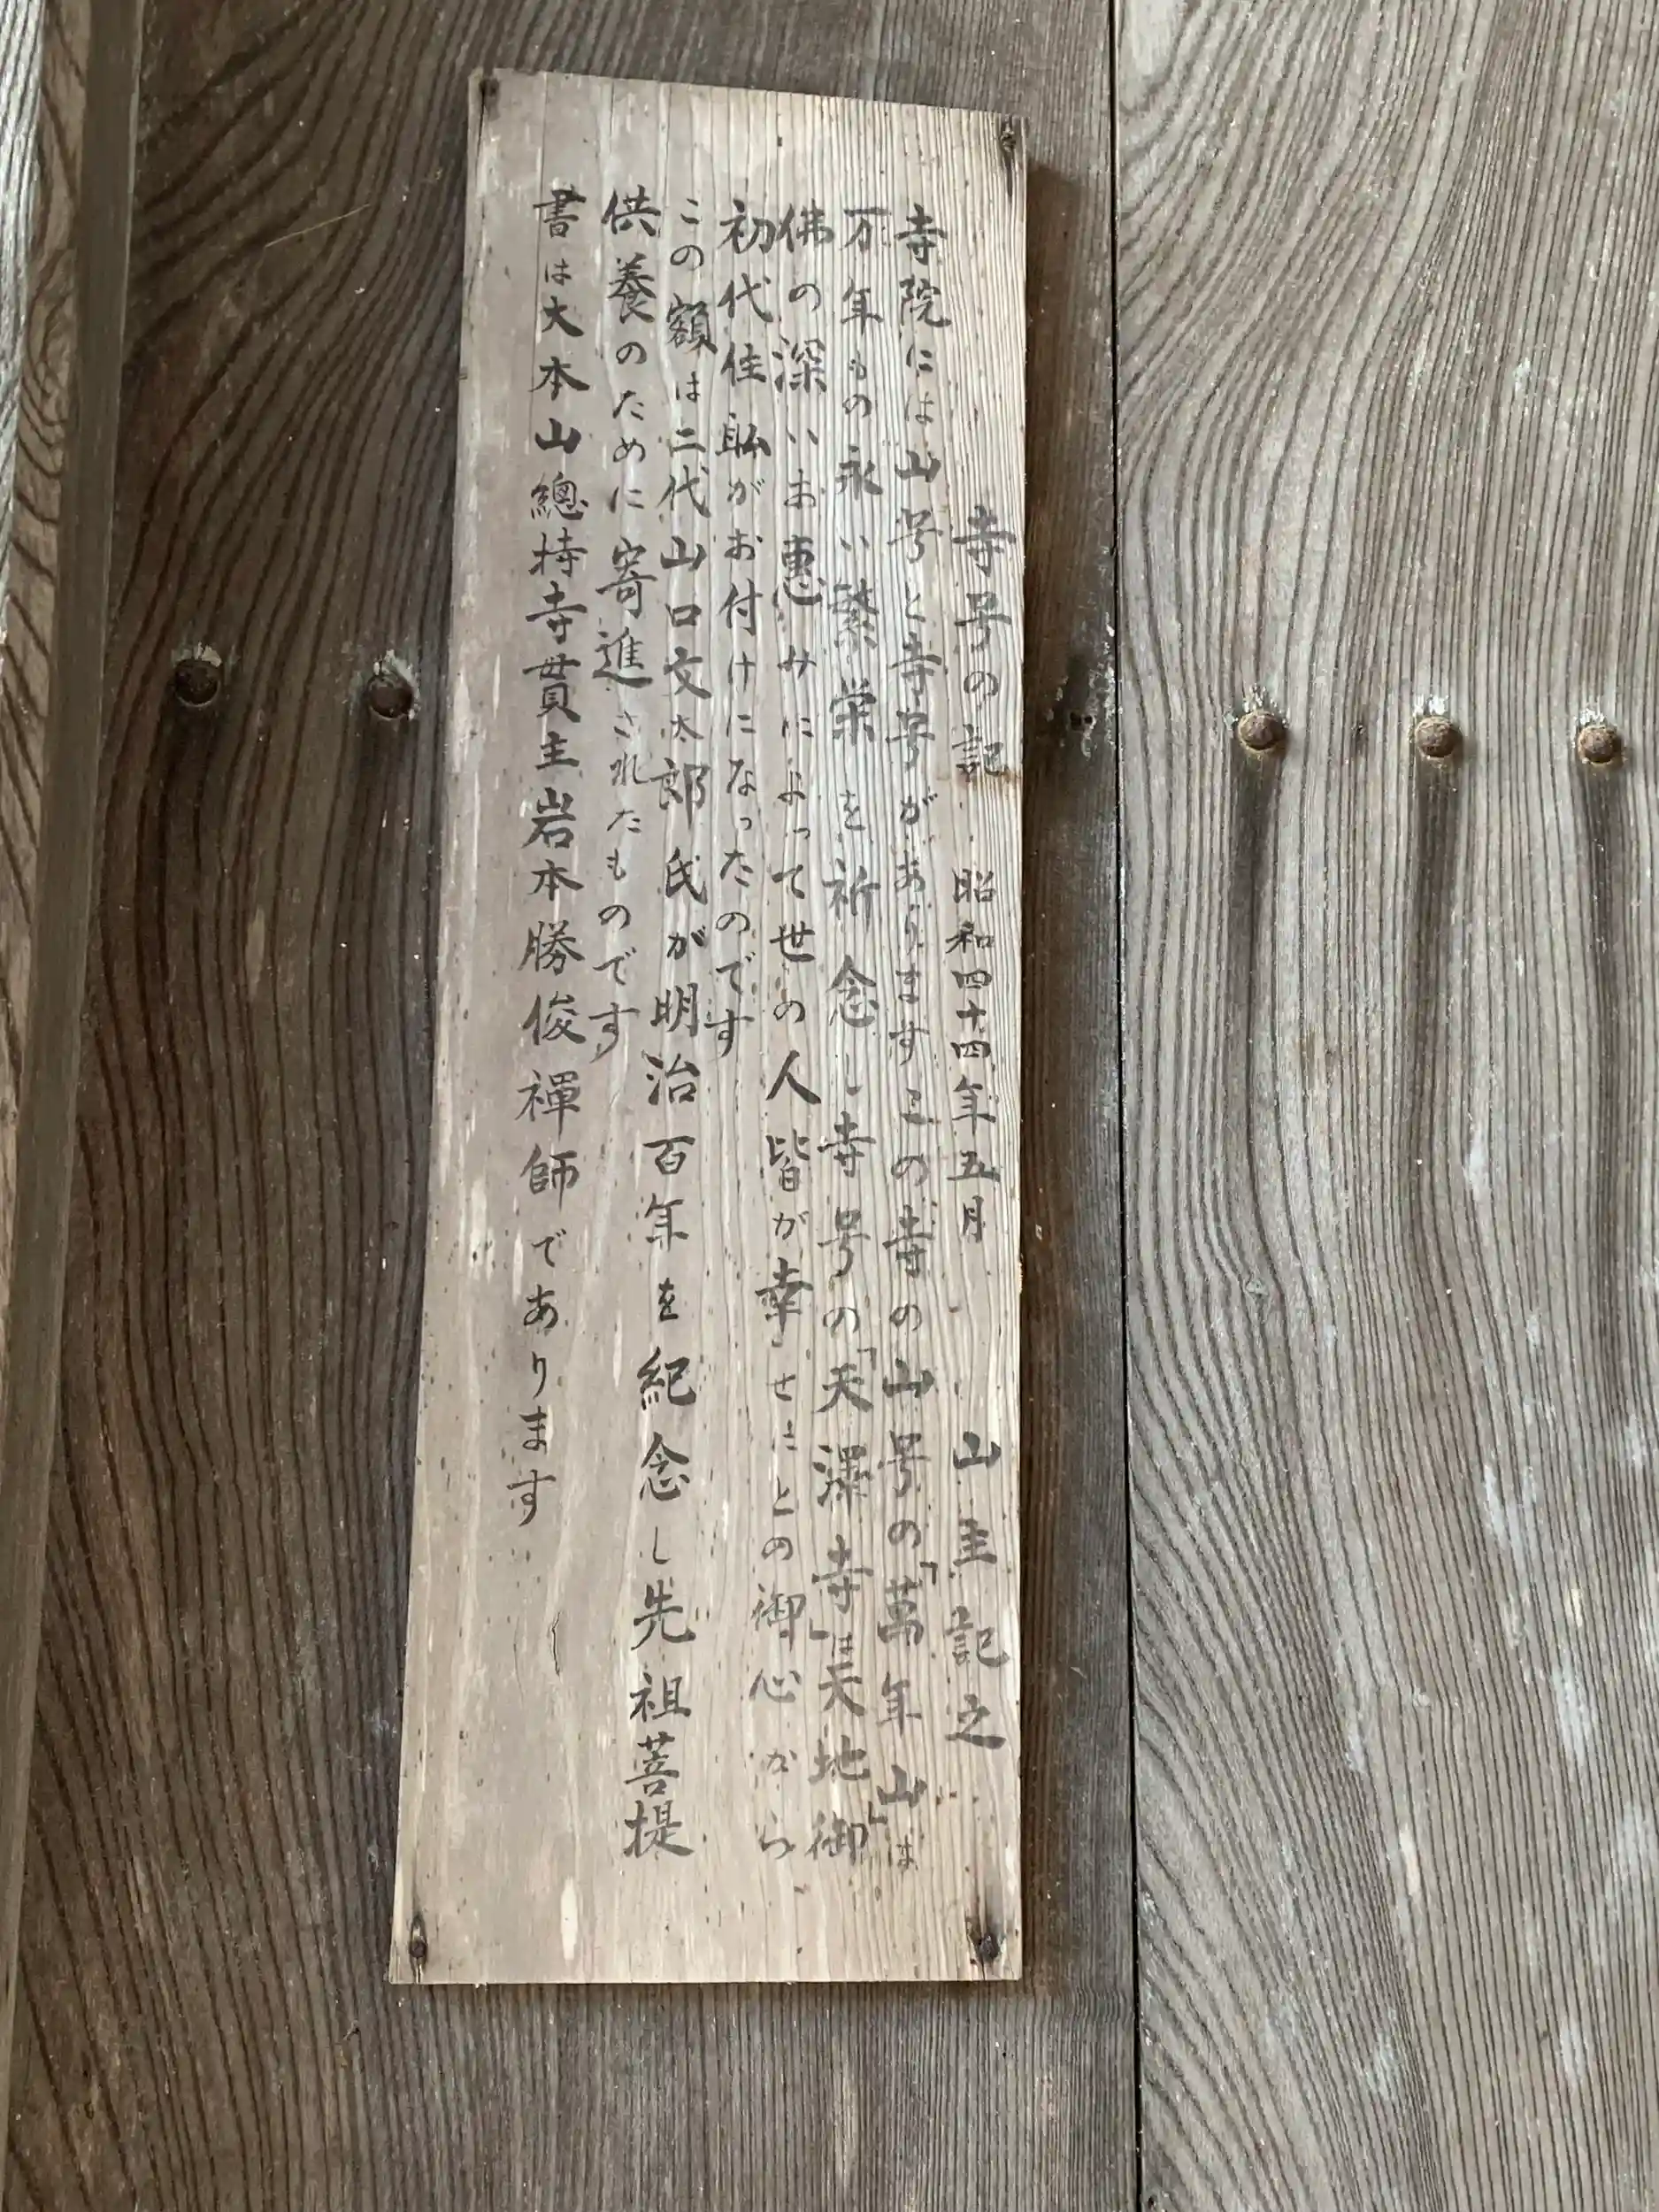 寺号の記 昭和四十四年五月 山主記之
寺院には山号と寺号がありますこの寺の山号の「萬年山」は
万年もの永い繁栄を祈念し寺号の「天澤寺」は天地御
佛の深いお惠みによって世の人皆が幸せにとの御心から
初代住職がお付けになったのです
この額は二代山口文太郎氏が明治百年を紀念し先祖菩提
供養のために寄進されたものです
書は大本山總持寺貫主岩本勝俊禅師であります